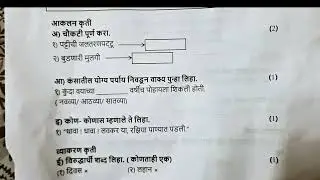 आकलन कृती
अ) चौकटी पूर्ण करा. (2)
१) पट्टीची जलतरणपटू
२) बुडणारी मुलगी
आ) कंसातील योग्य पर्याय निवडून वाक्य पुन्हा लिहा. (1)
१) कुंदा वयाच्या ________ वर्षीच पोहायला शिकली होती.
( नवव्या/ आठव्या/ सातव्या)
इ) कोण- कोणास म्हणाले ते लिहा. (1)
१) "धावा ! धावा ! लवकर या, रझिया पाण्यात पडली."
व्याकरण कृती
ई) विरुद्धार्थी शब्द लिहा. ( कोणताही एक) (1)
(१) दिवस × (२) लहान ×